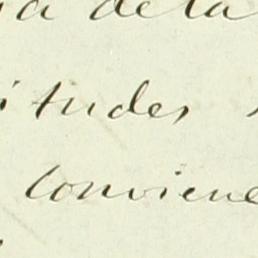 de la
itudes
conviene